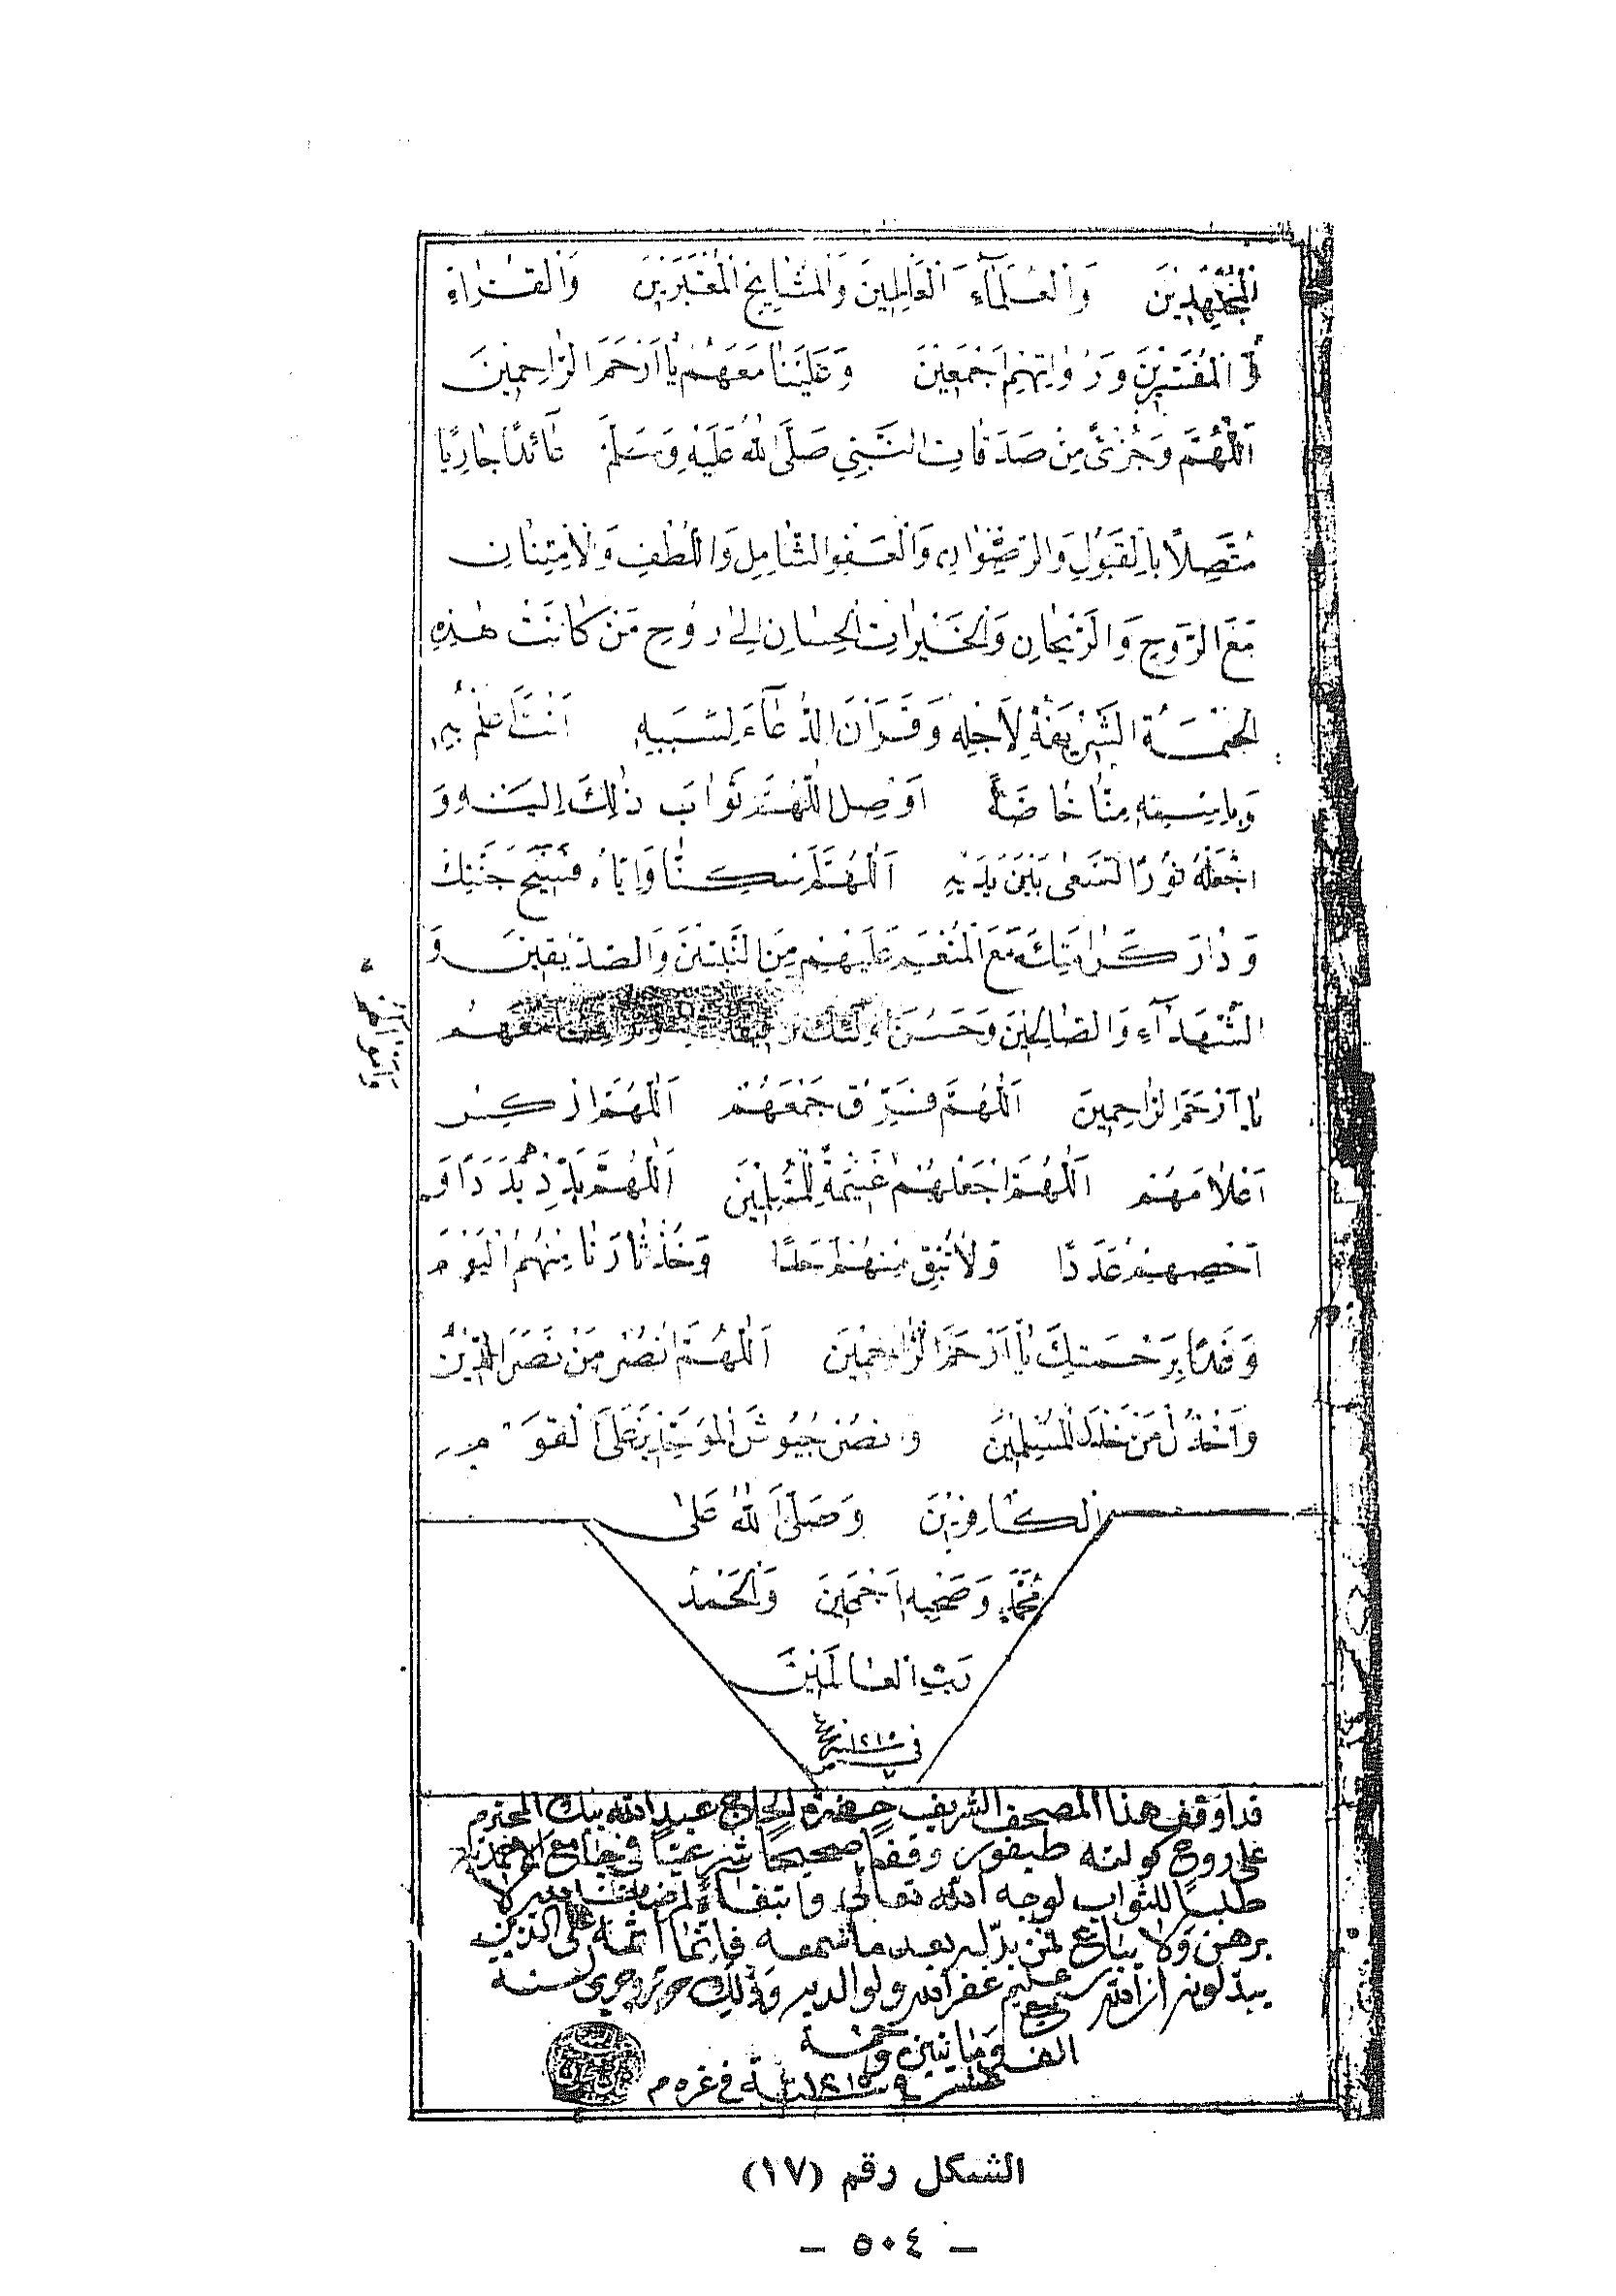 المُجْتَهِدِينَ وَالعُلَمَاءَ العَامِلِينَ وَالمَشَايِخِ المُعْتَبَرِينَ وَالقُرَّاءِ
وَ المُفَسِّرِينَ وَرُوَاتِهِمْ اَجْمَعِينَ وَعَلَيْنَا مَعَهُمْ يَا اَرْحَمَ الرَّاحِمِينَ
اَللّٰهُمَّ وَ مِنْ صَدَقَاتِ النَّبِي صَلَّى اللّٰهُ عَلَيْهِ وَسَلَّمَ جَارِيًا
مُتَّصِلًا بِالقَبُولِ وَالرِضْوَانِ وَالعَفْوِ الشَّامِلِ وَاللُّطْفِ وَالاِمْتِنَانِ
مَعَ الرَّوْحِ وَالرَّيْحَانِ وَالخَيْرَاتِ الحِسَانِ اِلَى رُوحِ مَنْ كَانَتْ هٰذِهِ
الخَتْمَةُ الشَّرِيفَةُ لِاَجْلِهِ وَقَرَأْنَ الدُّعَاءَ لِسَبَبِهِ اَنْتَ اَعْلَمُ بِهِ
وَبِاسْمِهِ مِنَّا خَاصَّةً اَوْصِلِ اللّٰهُمَّ ثَوَابَ ذٰلِكَ اِلَيْهِ وَ
اجْعَلْهُ نُورًا تَسْعَى بَيْنَ يَدَيْهِ اَللّٰهُمَّ اَسْكِنَّا وَاِيَّاهُ فَسِيحَ جَنَّتِكَ
وَدَارَ كَرَامَتِكَ مَعَ المُنْعَمِ عَلَيْهِمْ مِنَ النَّبِيِّنَ وَالصِّدِّيقِينَ وَ
الشُّهَدَآءِ وَالصَّالِحِينَ وَحَسُنَ اُولٰئِكَ رَفِيقًا مَعَهُمْ
يَا اَرْحَمَ الرَّاحِمِينَ اَللّٰهُمَّ فَرِّقْ جَمْعَهُمْ اَللّٰهُمَّ
اَعْلَامَهُمْ اَللّٰهُمَّ اجْعَلْهُمْ غَنِيمَةً لِلْمُسْلِمِينَ اَللّٰهُمَّ بَدِّدْهُمْ بَدَدًا وَ
اَحْصِهِمْ عَدَدًا وَلَا تُبْقِ مِنْهُمْ اَحَدًا وَخُذْ ثَارَنَا مِنْهُمُ اليَوْمَ
وَغَدًا بِرَحْمَتِكَ يَا اَرْحَمَ الرَّاحِمِينَ اَللّٰهُمَّ انْصُرْ مَنْ نَصَرَ الدِّينَ
وَاخْذُلْ مَنْ خَذَلَ المُسْلِمِينَ وَانْصُرْ جُيُوشَ المُوَحِّدِينَ عَلَى القَوْمِ
الكَافِرِينَ وَصَلَّى اللّٰهُ عَلَى
مُحَمَّدٍ وَصَحْبِهِ اَجْمَعِينَ وَالحَمْدُ
رَبِّ العَالَمِينَ
في سنة ١٢١٥
قد اوقف هذا المصحف الشريف حضرة الحاج عبد الله بيك المحترم
على روح كولته طيفور وقفًا صحيحًا شرعيًا في جامع الاحمدية
طلبًا للثواب لوجه الله تعالى وابتغاءً لمرضاته لا
يرهن ولا يباع فمن بدّله بعد ما سمعه فانما اثمه على الذين
يبدلونه ان الله سميع عليم غفر الله ولوالديه وذلك حرر وجرى سنة
الف ومائتين وخمسة
عشر في ١٢١٥ سنة في غرة م
الشكل رقم (١٧)
— ٥٠٤ —